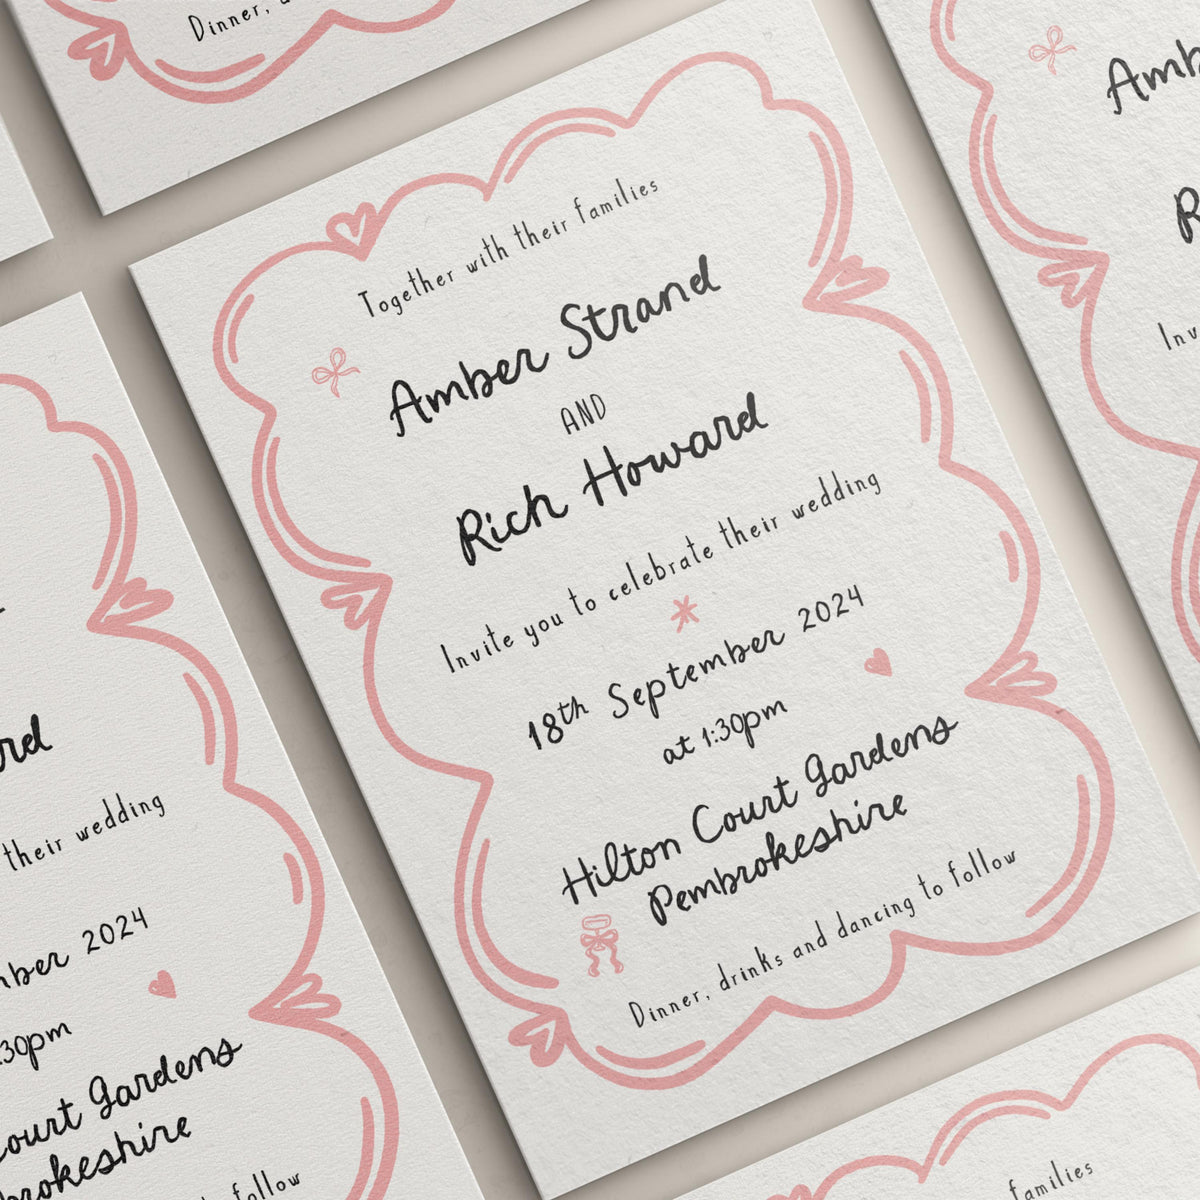 Together with their families
Amber Strand
AND
Rich Howard
Invite you to celebrate their wedding
18th September 2024
at 1:30pm
Hilton Court Gardens
Pembrokeshire
Dinner, drinks and dancing to follow
Dinner,
their wedding
2024
Court Gardens
to follow
families